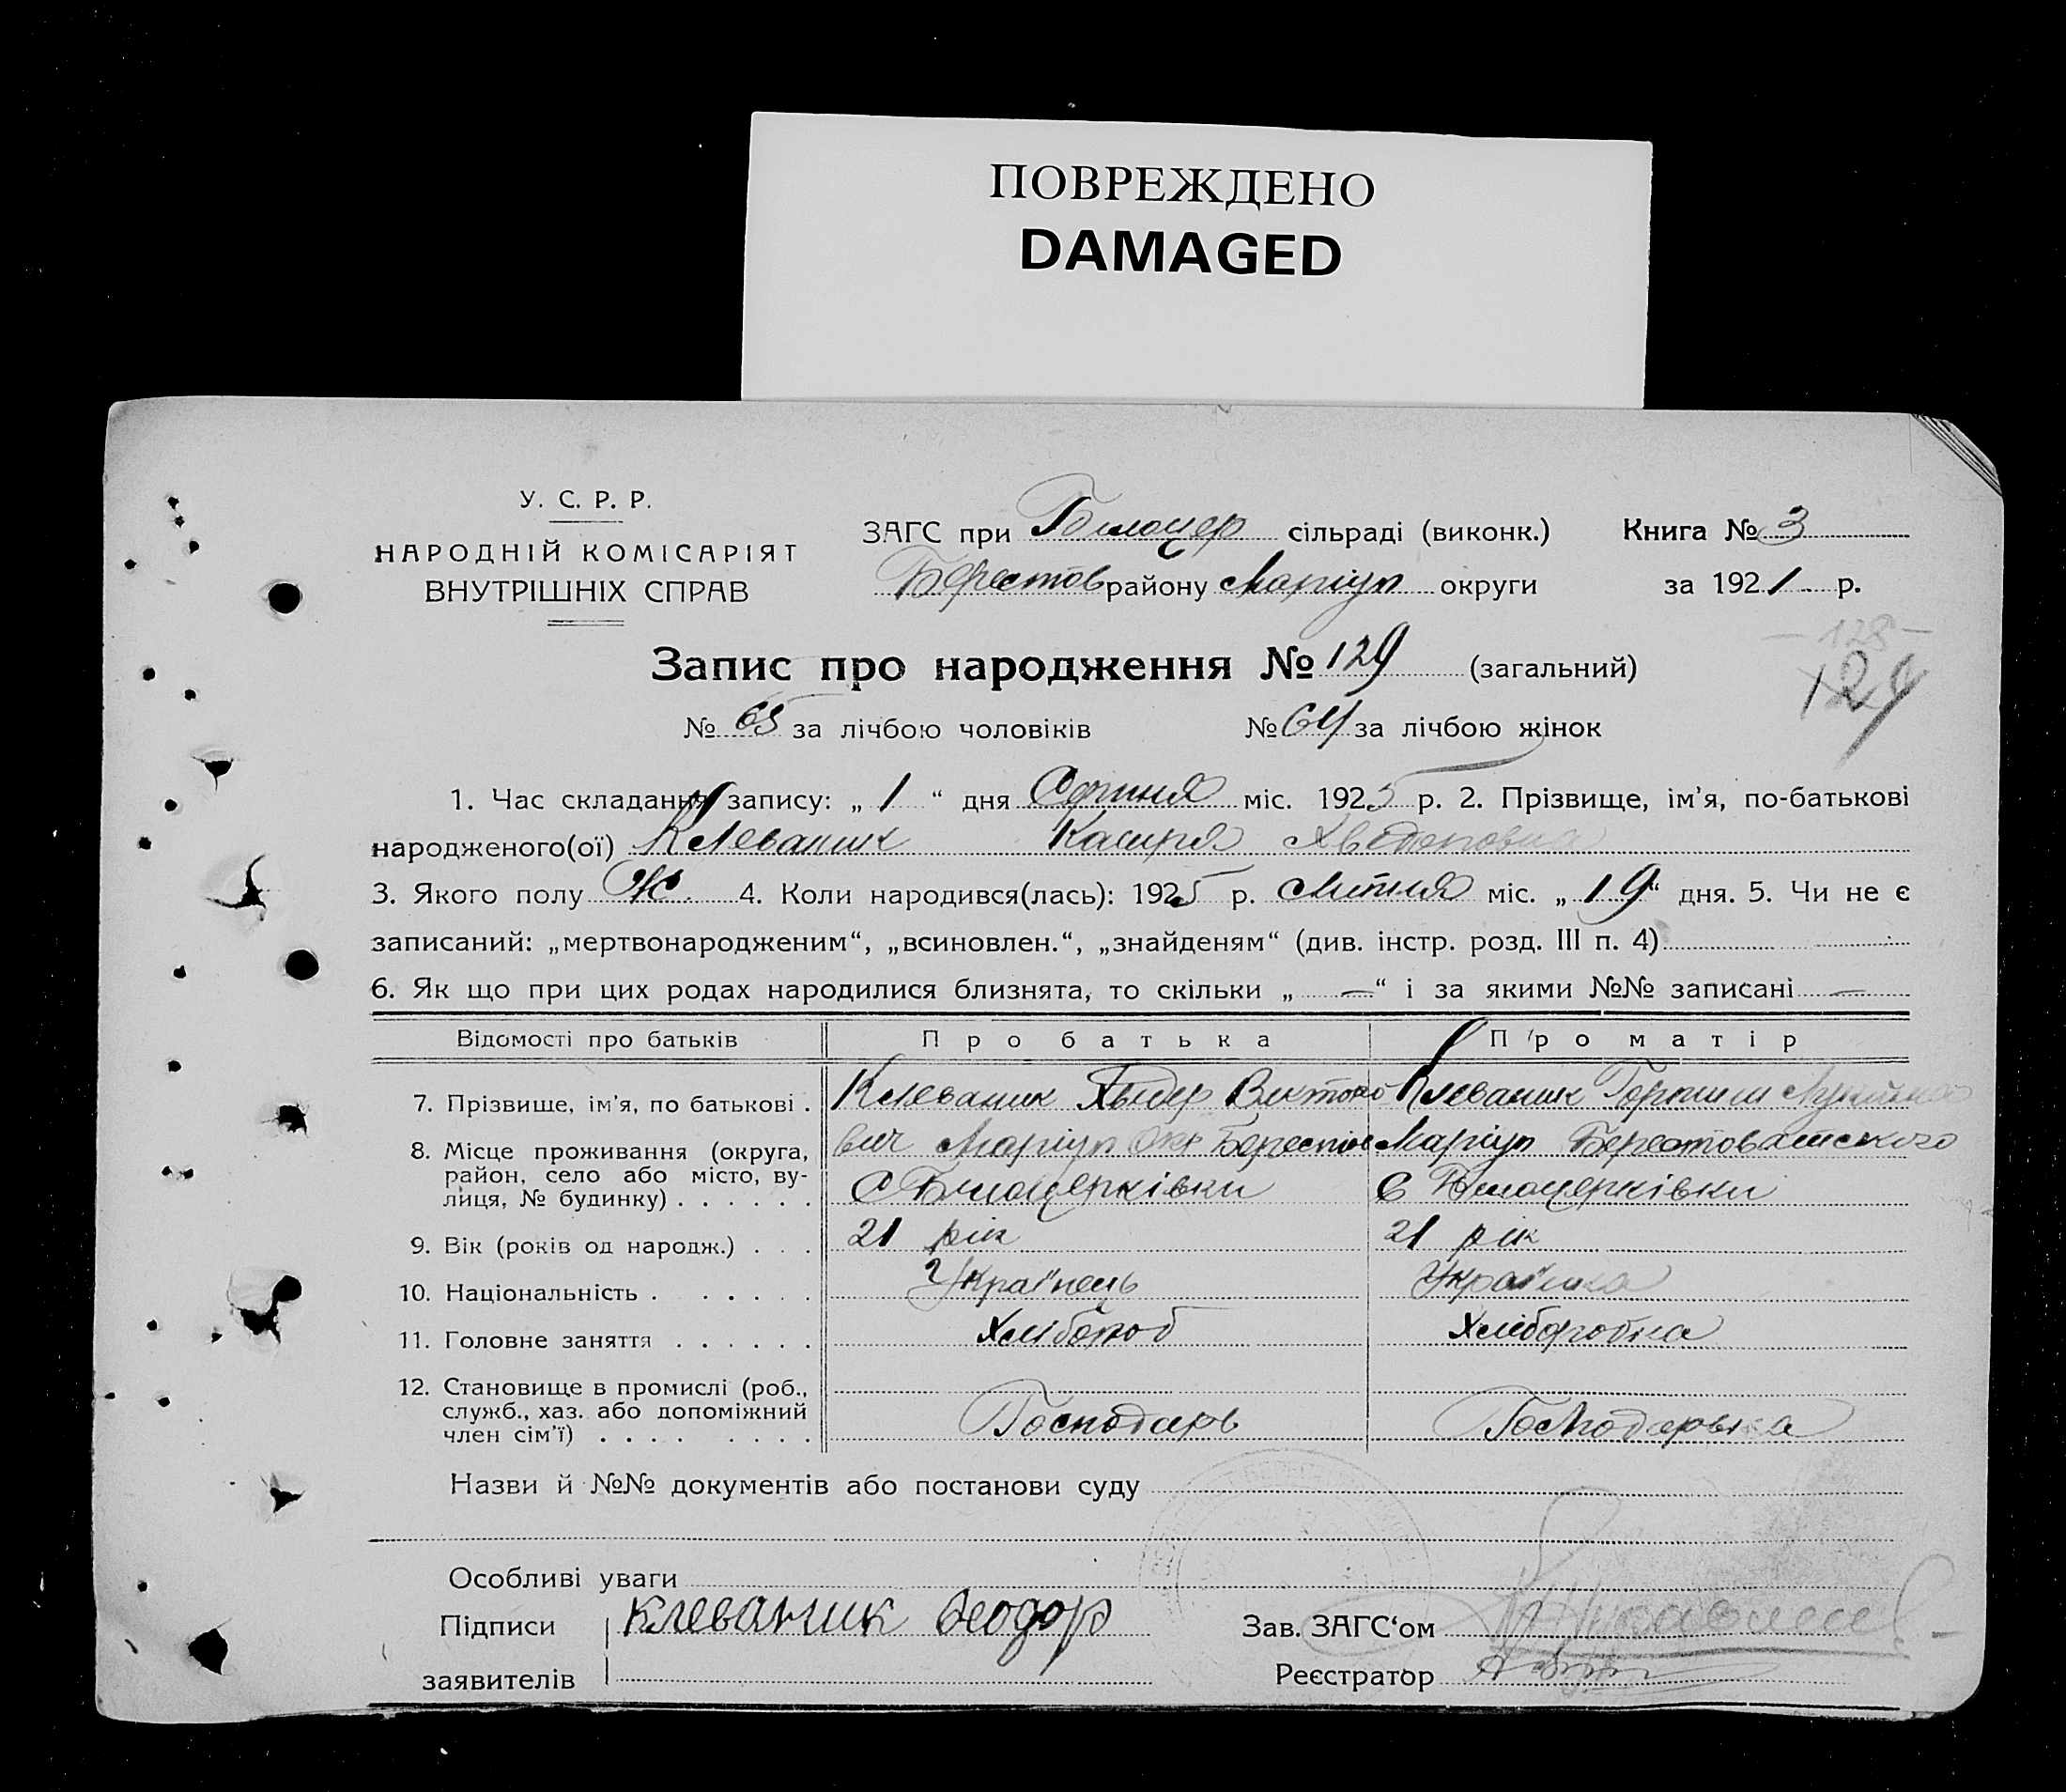 ПОВРЕЖДЕНО
DAMAGED
У. С. Р. Р.
НАРОДНІЙ КОМІСАРІЯТ
ВНУТРІШНІХ СПРАВ
ЗАГС при Білоцер сільраді (виконк.) Книга № 3
Берестов району Маріуп округи за 1921 р.
Запис про народження № 129 (загальний)
128
129
№ 65 за лічбою чоловіків № 64 за лічбою жінок
1. Час складання запису: „ 1 “ дня міс. 1925 р. 2. Прізвище, ім’я, по-батькові
народженого(ої) Клеваник
3. Якого полу Ж. 4. Коли народився(лась): 1925 р. Липня міс. „ 19 “ дня. 5. Чи не є
записаний: „мертвонародженим“, „всиновлен.“, „знайденям“ (див. інстр. розд. III п. 4)
6. Як що при цих родах народилися близнята, то скільки „ — “ і за якими №№ записані —
Відомості про батьків Про батька Про матір
7. Прізвище, ім’я, по батькові . Клеваник Викторо Клеваник
8. Місце проживання (округа, район, село або місто, вулиця, № будинку) . . . . . . вич Маріуп Окр Берестов Маріуп
С Білоцерківки С Білоцерківки
9. Вік (років од народж.) . . . 21 рік 21 рік
10. Національність . . . . . . Українець Українка
11. Головне заняття . . . . . . Хлібороб Хлібробка
12. Становище в промислі (роб., служб., хаз. або допоміжний член сім’ї) . . . . . . . . Господарь Господарька
Назви й №№ документів або постанови суду
Особливі уваги
Підписи Клеваник Феодор Зав. ЗАГС‘ом
заявителів Реєстратор